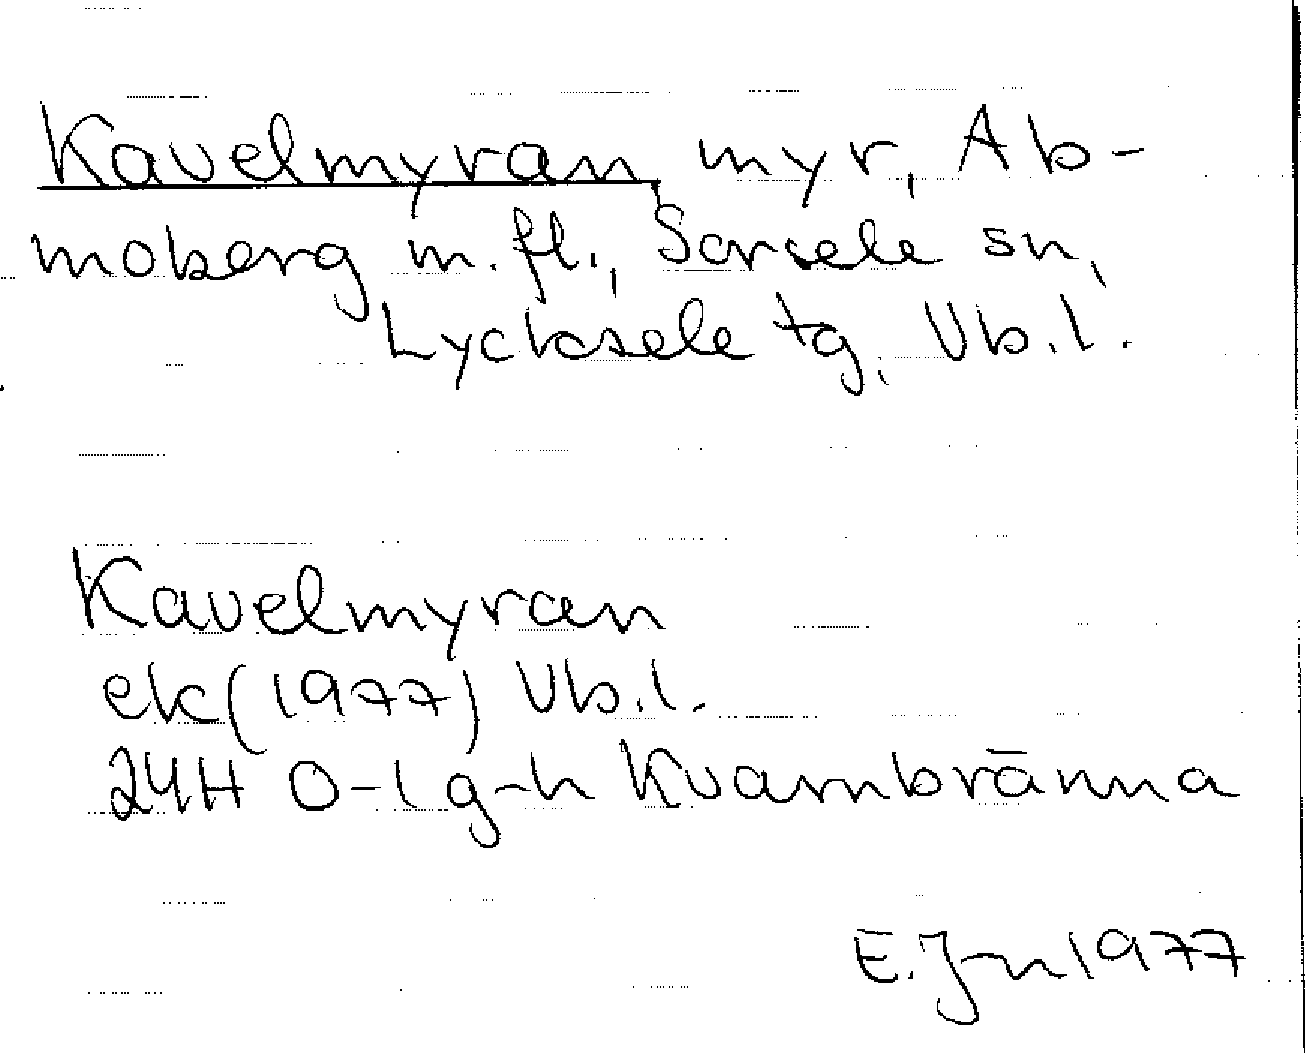 Kavelmyran, myr, Ab-
moberg m.fl., Sorsele sn,
Lycksele tg, Vb.l.
Kavelmyran
ek(1977) Vb.l.
24H 0-1 g-h Kvarnbränna
E.J-n 1977